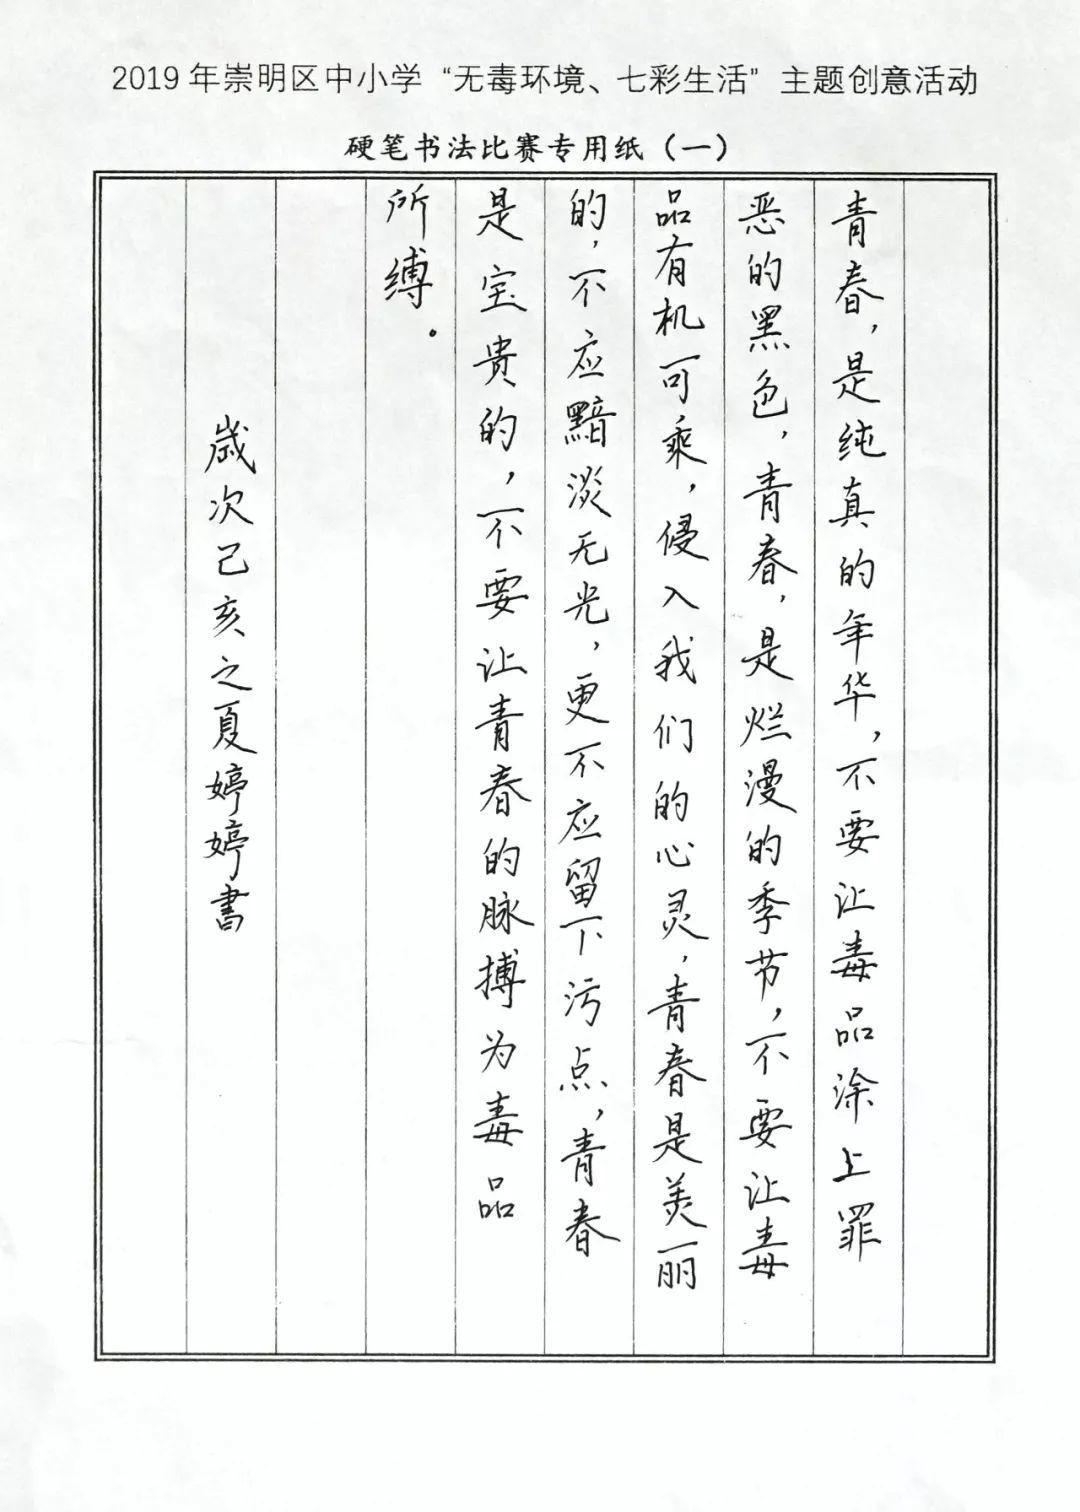 2019年崇明区中小学“无毒环境、七彩生活”主题创意活动
硬笔书法比赛专用纸（一）
青春，是纯真的年华，不要让毒品涂上罪
恶的黑色，青春，是烂漫的季节，不要让毒
品有机可乘，侵入我们的心灵，青春是美丽
的，不应黯淡无光，更不应留下污点，青春
是宝贵的，不要让青春的脉搏为毒品
所缚。
歲次己亥之夏婷婷書